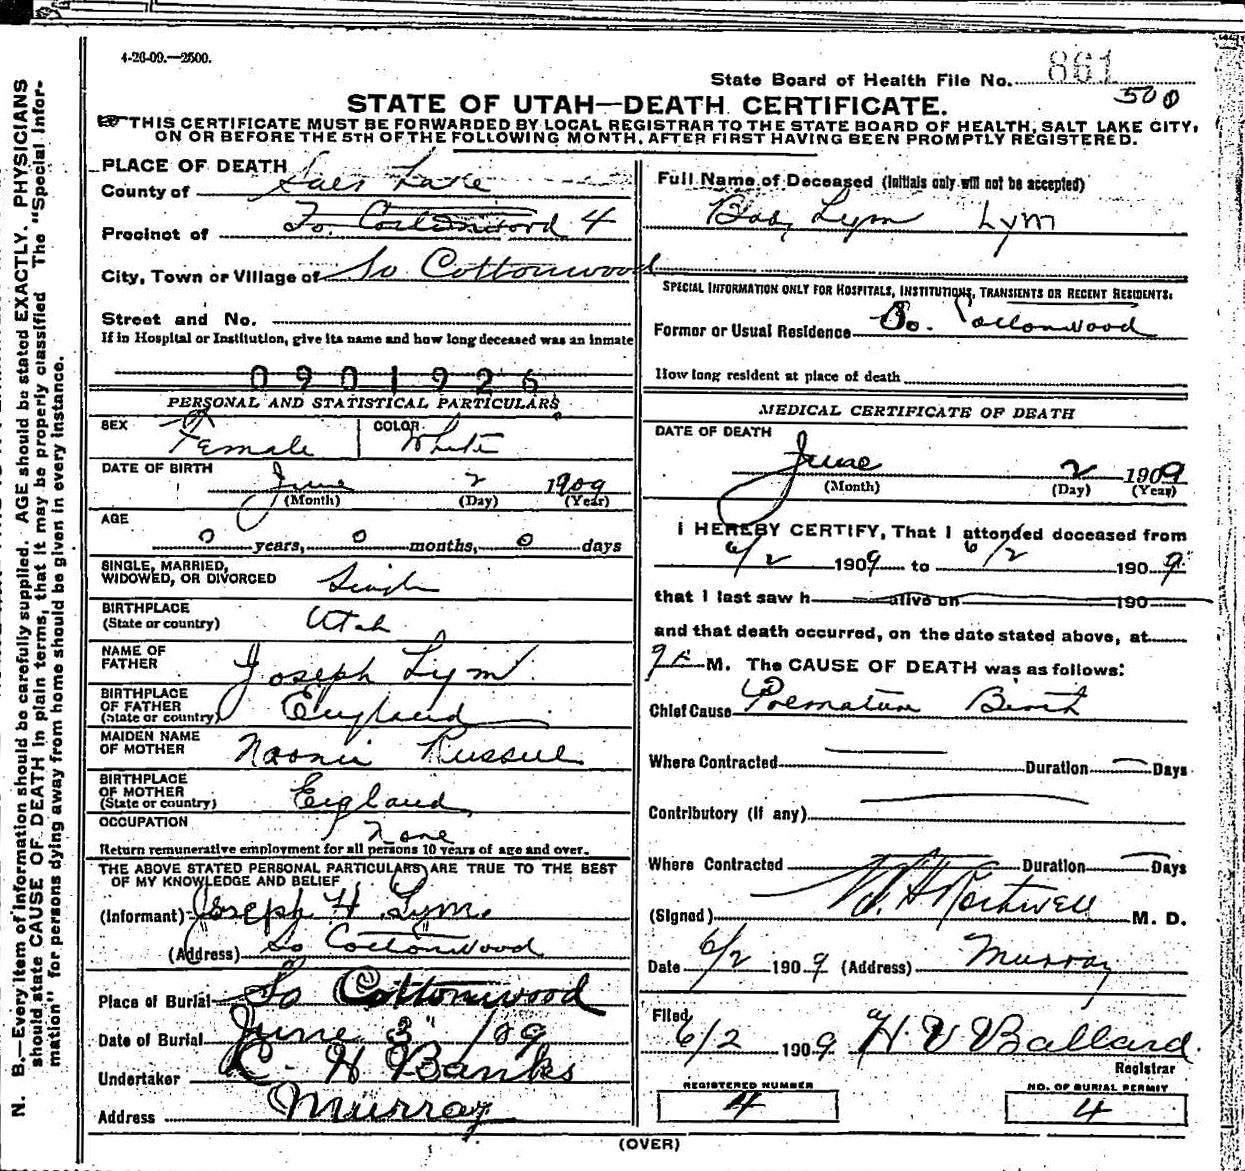 4-26-09.—2500.
State Board of Health File No. 861
500
STATE OF UTAH—DEATH CERTIFICATE.
THIS CERTIFICATE MUST BE FORWARDED BY LOCAL REGISTRAR TO THE STATE BOARD OF HEALTH, SALT LAKE CITY,
ON OR BEFORE THE 5TH OF THE FOLLOWING MONTH, AFTER FIRST HAVING BEEN PROMPTLY REGISTERED.
PLACE OF DEATH
County of Salt Lake
Precinct of So. Cottonwood 4
City, Town or Village of So Cottonwood
Street and No.
If in Hospital or Institution, give its name and how long deceased was an inmate
0901926
PERSONAL AND STATISTICAL PARTICULARS
SEX Female COLOR White
DATE OF BIRTH
June 2 1909
(Month) (Day) (Year)
AGE
0 years, 0 months, 0 days
SINGLE, MARRIED,
WIDOWED, OR DIVORCED Single
BIRTHPLACE
(State or country) Utah
NAME OF
FATHER Joseph Lym
BIRTHPLACE
OF FATHER
(State or country) England
MAIDEN NAME
OF MOTHER Naomi Russell
BIRTHPLACE
OF MOTHER
(State or country) England
OCCUPATION
None
Return remunerative employment for all persons 10 years of age and over.
THE ABOVE STATED PERSONAL PARTICULARS ARE TRUE TO THE BEST
OF MY KNOWLEDGE AND BELIEF
(Informant) Joseph H Lym.
(Address) So Cottonwood
Place of Burial So Cottonwood
Date of Burial June 3" /09
Undertaker C. H Banks
Address Murray
Full Name of Deceased (Initials only will not be accepted)
Baby Lym Lym
SPECIAL INFORMATION ONLY FOR HOSPITALS, INSTITUTIONS, TRANSIENTS OR RECENT RESIDENTS:
Former or Usual Residence So. Cottonwood
How long resident at place of death
MEDICAL CERTIFICATE OF DEATH
DATE OF DEATH
June 2 1909
(Month) (Day) (Year)
I HEREBY CERTIFY, That I attended deceased from
6/2 1909 to 6/2 1909.
that I last saw h alive on 190
and that death occurred, on the date stated above, at
9 M. The CAUSE OF DEATH was as follows:
Chief Cause Premature Birth
Where Contracted Duration Days
Contributory (if any)
Where Contracted Duration Days
(Signed) Rothwell M. D.
Date 6/2 1909 (Address) Murray
Filed
6/2 1909 H. V Ballard.
Registrar
REGISTERED NUMBER
4
NO. OF BURIAL PERMIT
4
(OVER)
N. B.—Every item of information should be carefully supplied. AGE should be stated EXACTLY. PHYSICIANS
should state CAUSE OF DEATH in plain terms, that it may be properly classified The "Special Infor-
mation" for persons dying away from home should be given in every instance.